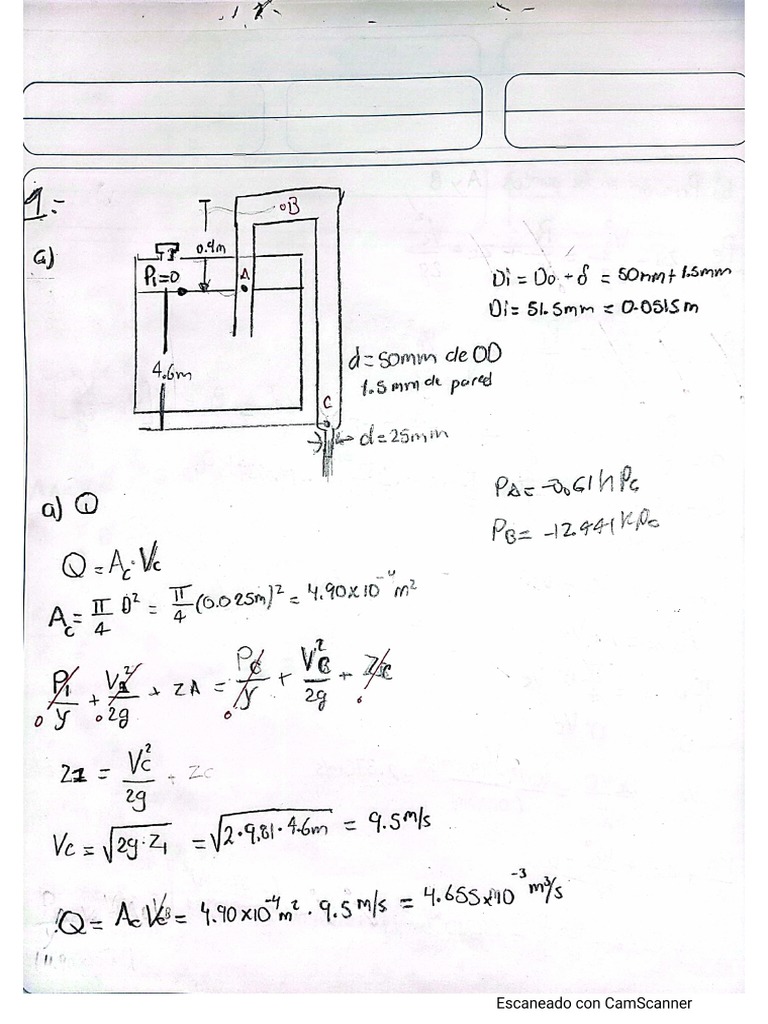 1.-
a)
B
0.9m
P₁=0
A
4.6m
C
Di = Do + δ = 50mm + 1.5mm
Di = 51.5mm = 0.0515m
d = 50mm de OD
1.5 mm de pared
d = 25mm
a) ①
PB = -12.441 kPa
Q = Ac · Vc
Ac = π/4 D² = π/4 (0.025m)² = 4.90x10⁻⁴ m²
P₁/γ + V₁²/2g + ZA = PC/γ + VC²/2g + ZC
0 0 0 0
Z1 = Vc²/2g + Zc
Vc = √2g·Z₁ = √2·9.81·4.6m = 9.5 m/s
Q = Ac Vc = 4.90x10⁻⁴ m² · 9.5 m/s = 4.655x10⁻³ m³/s
Escaneado con CamScanner